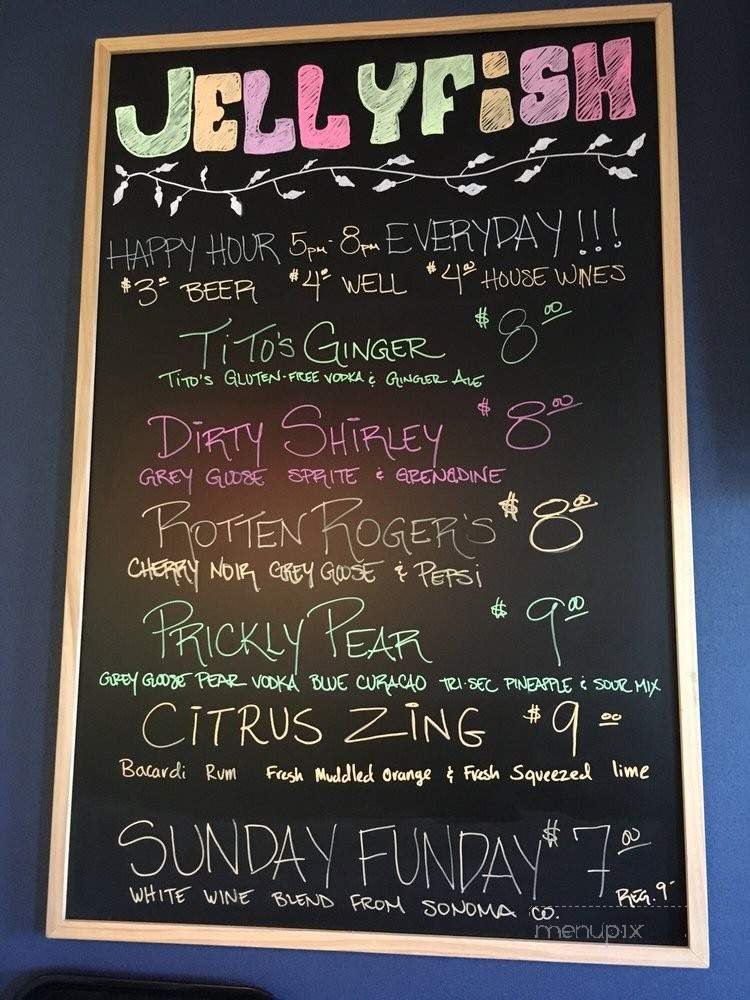 JELLYFISH
HAPPY HOUR 5pm-8pm EVERYDAY!!!
$3.00 BEER $4.00 WELL $4.00 HOUSE WINES
TITO'S GINGER $8.00
TITO'S GLUTEN-FREE VODKA & GINGER ALE
DIRTY SHIRLEY $8.00
GREY GOOSE SPRITE & GRENADINE
ROTTEN ROGER'S $8.00
CHERRY NOIR GREY GOOSE & PEPSI
PRICKLY PEAR $9.00
GREY GOOSE PEAR VODKA BLUE CURACAO TRI-SEC PINEAPPLE & SOUR MIX
CITRUS ZING $9.00
Bacardi Rum Fresh Muddled Orange & Fresh Squeezed lime
SUNDAY FUNDAY $7.00
WHITE WINE BLEND FROM SONOMA CO. REG. 9
menupix